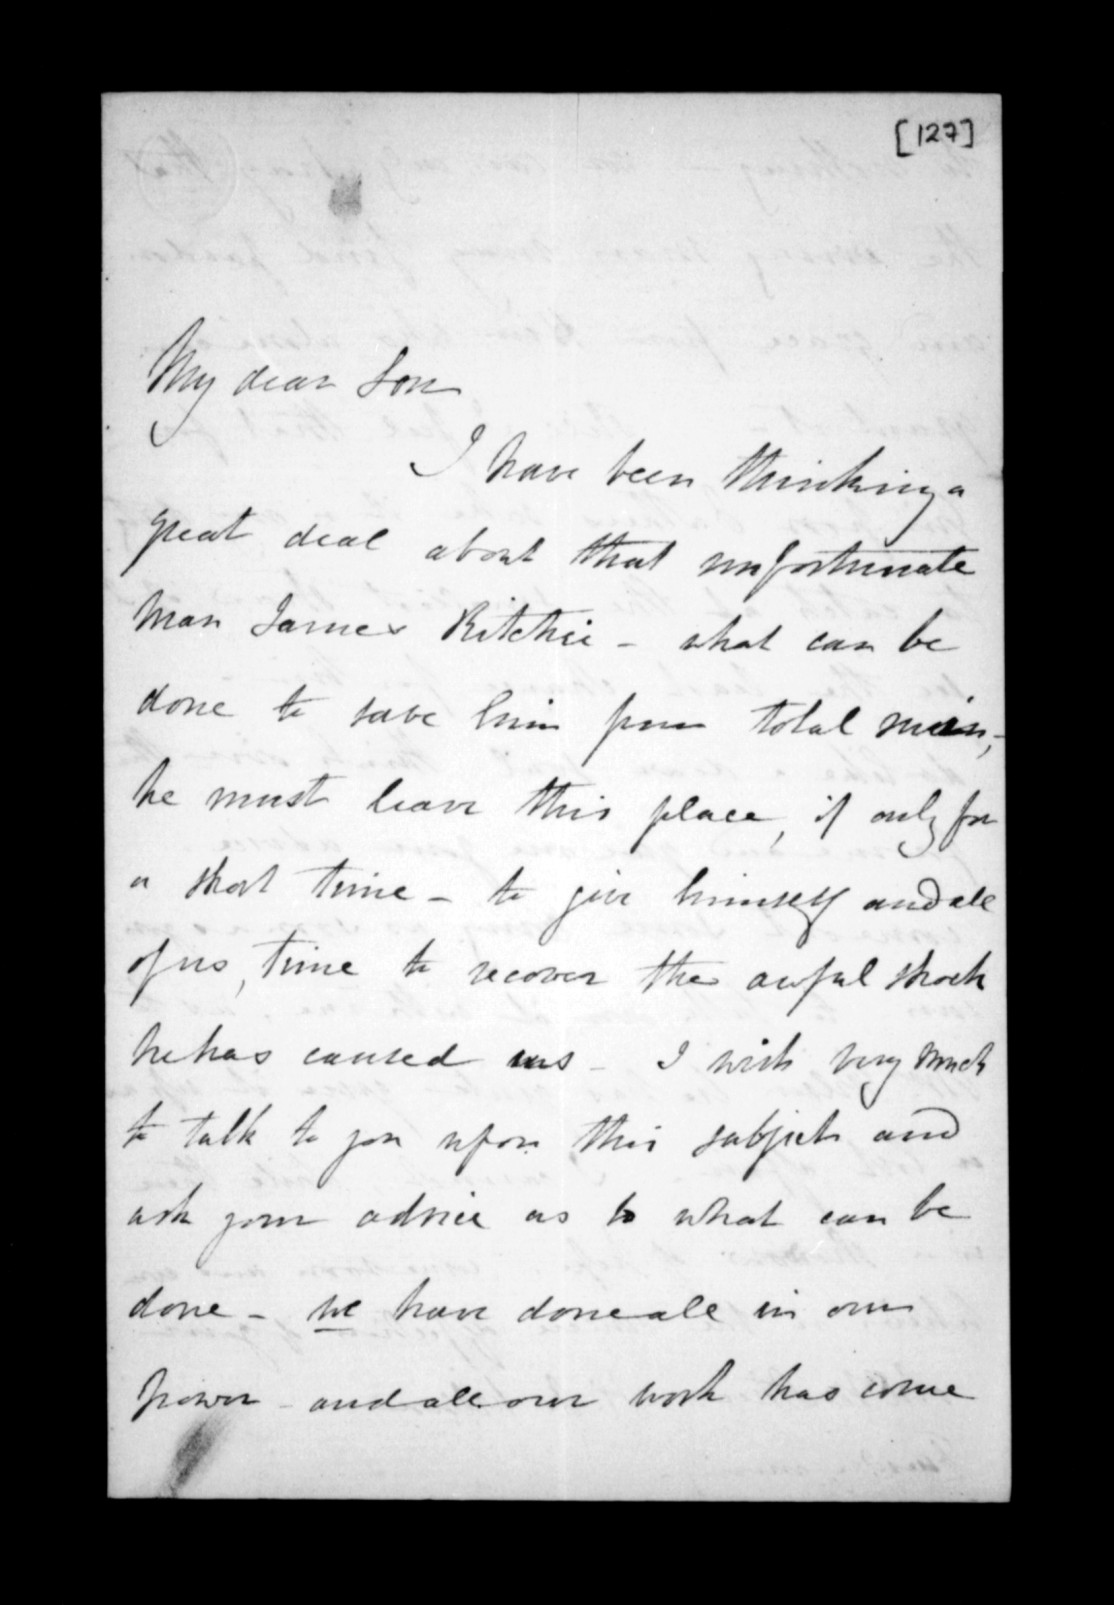 [127]
My dear Son
I have been thinking a
great deal about that unfortunate
man James Ritchie - what can be
done to save him from total ruin,-
he must leave this place, if only for
a short time - to give himself and all
of us, time to recover the awful shock
he has caused us - I wish very much
to talk to you upon this subject and
ask your advice as to what can be
done - we have done all in our
power - and all our work has come